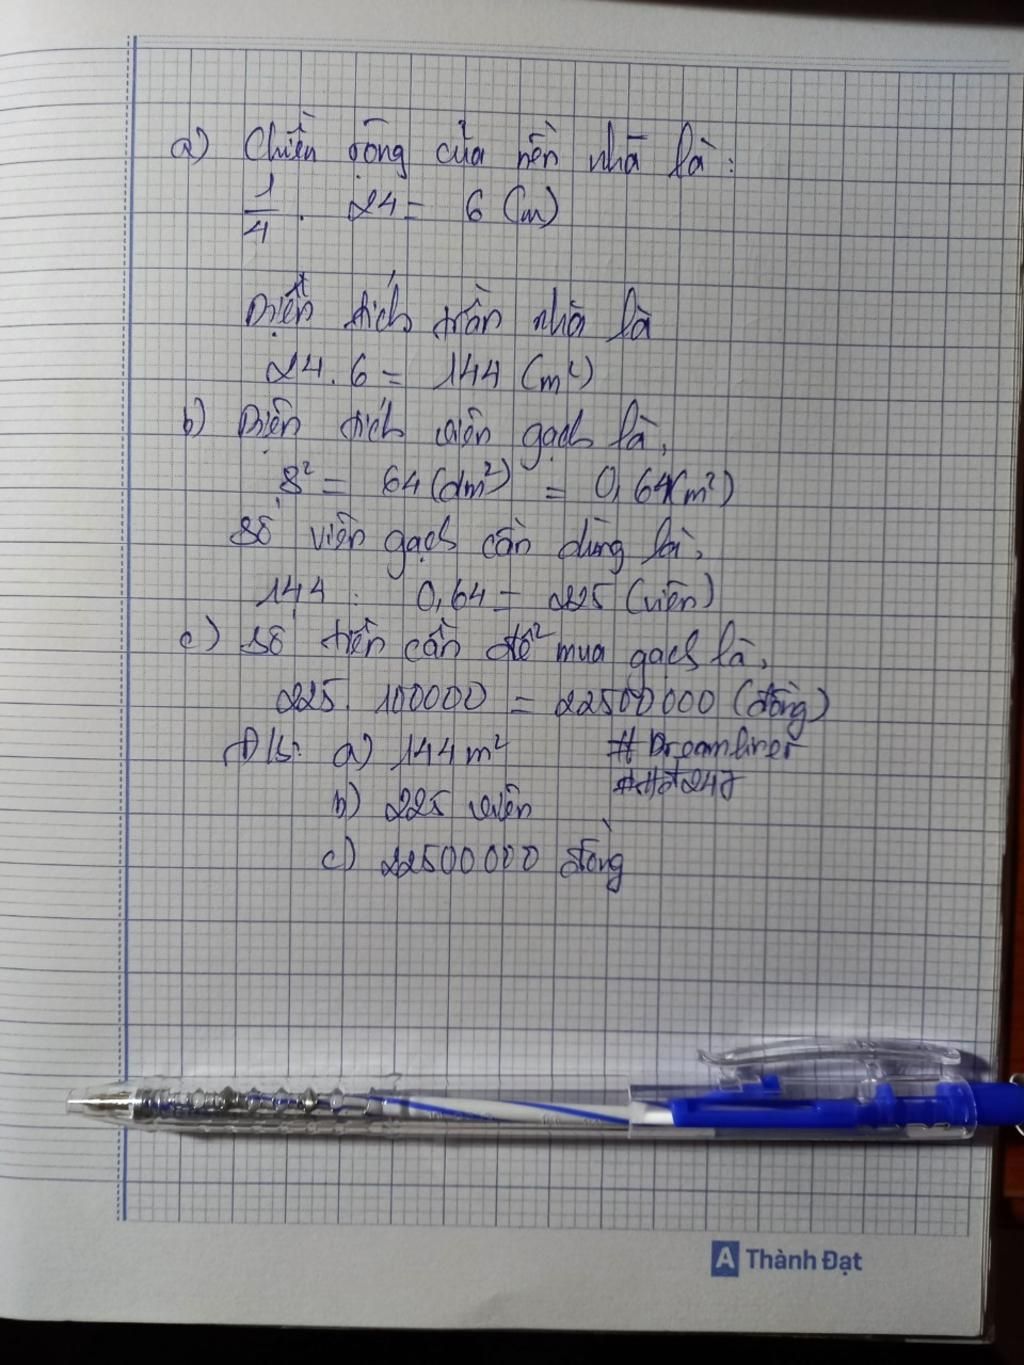 a) Chiều rộng của nền nhà là:
1/4 . 24 = 6 (m)
Diện tích trần nhà là
24.6 = 144 (m²)
b) Diện tích viên gạch là,
8² = 64 (dm²) = 0,64 (m²)
Số viên gạch cần dùng là,
144 : 0,64 = 225 (viên)
c) Số tiền cần để mua gạch là,
225. 100000 = 22500000 (đồng)
Đ/S: a) 144 m² # Dreamliner
b) 225 viên
c) 22500000 đồng
A Thành Đạt